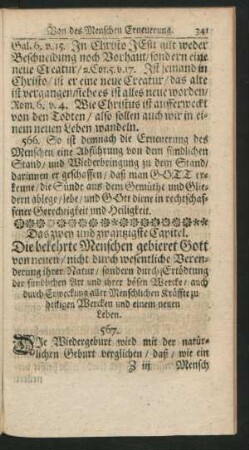 Von des Menschen Erneuerung. 341
Gal. 6. v. 15. In Christo JEsu gilt weder
Beschneidung noch Vorhaut / sondern eine
neue Creatur / 2. Cor. 5. v. 17. Ist jemand in
Christo / ist er eine neue Creatur / das alte
ist vergangen / siehe es ist alles neue worden /
Rom. 6. v. 4. Wie Christus ist aufferweckt
von den Todten / also sollen auch wir in ei-
nem neuen Leben wandeln.
566. So ist demnach die Erneuerung des
Menschen eine Abführung von dem sündlichen
Stand / und Wiederbringung zu dem Stand /
darinnen er geschaffen / daß man GOTT er-
kenne / die Sünde aus dem Gemüthe und Glie-
dern ablege / lebe / und GOtt diene in rechtschaf-
fener Gerechtigkeit und Heiligkeit.
Das zwey und zwantzigste Capitel.
Die bekehrte Menschen gebieret Gott
von neuen / nicht durch wesentliche Veren-
derung ihrer Natur / sondern durch Ertödtung
der sündlichen Art und ihrer bösen Wercke / auch
durch Erweckung aller Menschlichen Kräffte zu
heiligen Wercken und einem neuen
Leben.
567.
DIe Wiedergeburt wird mit der natür-
lichen Geburt verglichen / daß / wie ein
Z iij Mensch